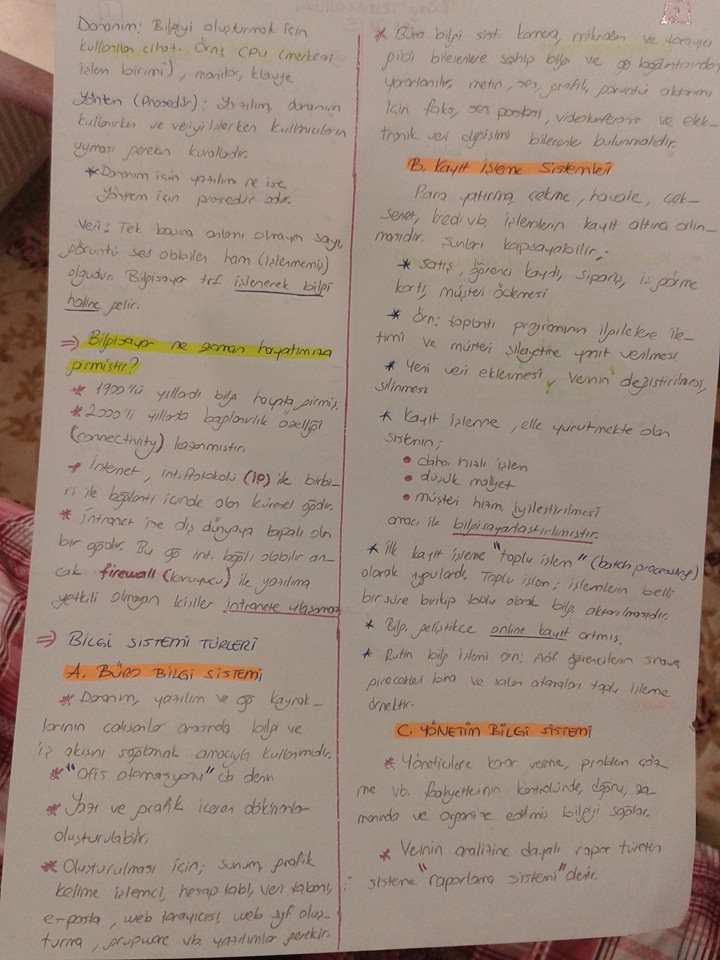 Donanım: Bilgiyi oluşturmak için
kullanılan cihat. Örn; CPU (merkezi
işlem birimi), monitör, klavye
Yöntem (Prosedür): Yazılım, donanım
kullanırken ve veriyi işlerken kullanıcıların
uyması gereken kurallardır.
* Donanım için yazılım ne ise
yöntem için prosedür odur.
Veri: Tek başına anlamı olmayan sayı,
görüntü ses olabilen ham (işlenmemiş)
olgudur. Bilgisayar trf işlenerek bilgi
haline gelir.
⇒ Bilgisayar ne zaman hayatımıza
girmiştir?
* 1900'lü yıllarda bilg. hayata girmiş,
* 2000'li yıllarda bağlanırlık özelliği
(connectivity) kazanmıştır.
* İnternet, int. Protokolü (IP) ile birbi-
ri ile bağlantı içinde olan küresel ağdır.
* İntranet ise dış dünyaya kapalı olan
bir ağdır. Bu ağ int. bağlı olabilir an-
cak firewall (koruyucu) ile yazılıma
yetkili olmayan kişiler intranete ulaşamaz
⇒ BİLGİ SİSTEMİ TÜRLERİ
A. BÜRO BİLGİ SİSTEMİ
* Donanım, yazılım ve ağ kaynak-
larının çalışanlar arasında bilgi ve
iş akışını sağlamak amacıyla kullanımıdır.
* "Ofis otomasyonu" da denir
* Yazı ve grafik içeren dökümanlar
oluşturulabilir.
* Oluşturulması için; sunum, grafik
kelime işlemci, hesap tabl, veri tabanı,
e-posta, web tarayıcısı, web syf oluş-
turma, groupware vb. yazılımlar gerekir.
* Büro bilgi sist. kamera, mikrofon ve tarayıcı
gibi bilenlere sahip bilgi ve ağ bağlantısından
yararlanılır. metin, ses, grafik, görüntü aktarımı
için faks, ses postası, videokonferans ve elek-
tronik veri değişimi bileşenler bulunmalıdır.
B. Kayıt İşleme Sistemleri
Para yatırma, çekme, havale, çek-
senet, kredi vb. işlemlerin kayıt altına alın-
masıdır. Şunları kapsayabilir;
* Satış, öğrenci kaydı, sipariş, iz görme
kartı, müşteri ödemesi
* Örn; toplantı programının ilgililere ile-
timi ve müşteri şikayetine yanıt verilmesi
* Yeni veri eklenmesi, verinin değiştirilmesi,
silinmesi
* Kayıt işleme, elle yürütmekte olan
sistemin;
• daha hızlı işlem
• düşük maliyet
• müşteri hizm iyileştirilmesi
amacı ile bilgisayarlaştırılmıştır.
* İlk kayıt işleme "toplu işlem" (batch processing)
olarak uygulandı. Toplu işlem; işlemlerin belli
bir süre birikip toplu olarak bilg. aktarılmasıdır.
* Bilg. geliştikçe online kayıt artmış.
* Rutin bilgi işlemi örn; AÖF öğrencilerin sınava
girecekleri bina ve salon atamaları toplu işleme
örnektir.
C. YÖNETİM BİLGİ SİSTEMİ
* Yöneticilere karar verme, problem çöz-
me vb. faaliyetlerinin kontrolünde, doğru, za-
manında ve organize edilmiş bilgiyi sağlar.
* Verinin analizine dayalı rapor türeten
sisteme "raporlama sistemi" denir.